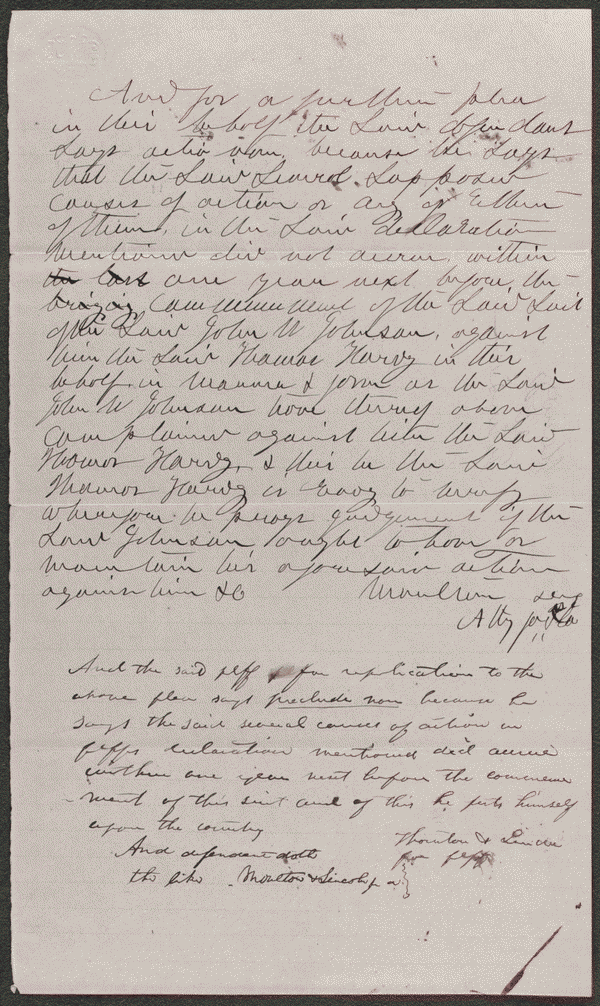 And for a further plea
in this behalf the Said defendant
Says actio non, because he Says
that the Said Several Supposed
causes of action or any or Either
of them, in the Said declaration
mentioned did not accrue within
one year next before the
commencement of the Said Suit
of the Said John W Johnson, against
him the Said Thomas Harvy in this
behalf in manner & form as the Said
John W Johnson have thereof above
complained against him the Said
Thomas Harvy, & this he the Said
Thomas Harvy is ready to verify
wherefore he prays judgement if the
Said Johnson ought to have or
maintain his aforesaid action
against him &c Moulton
Atty for
And the said plff for replication to the
above plea says preclude non because he
says the said several causes of action in
plffs declaration mentioned did accrue
within one year next before the commence
-ment of this suit and of this he puts himself
upon the country
Thornton & Linder
for plff
And defendant doth
the like Moulton & Lincoln